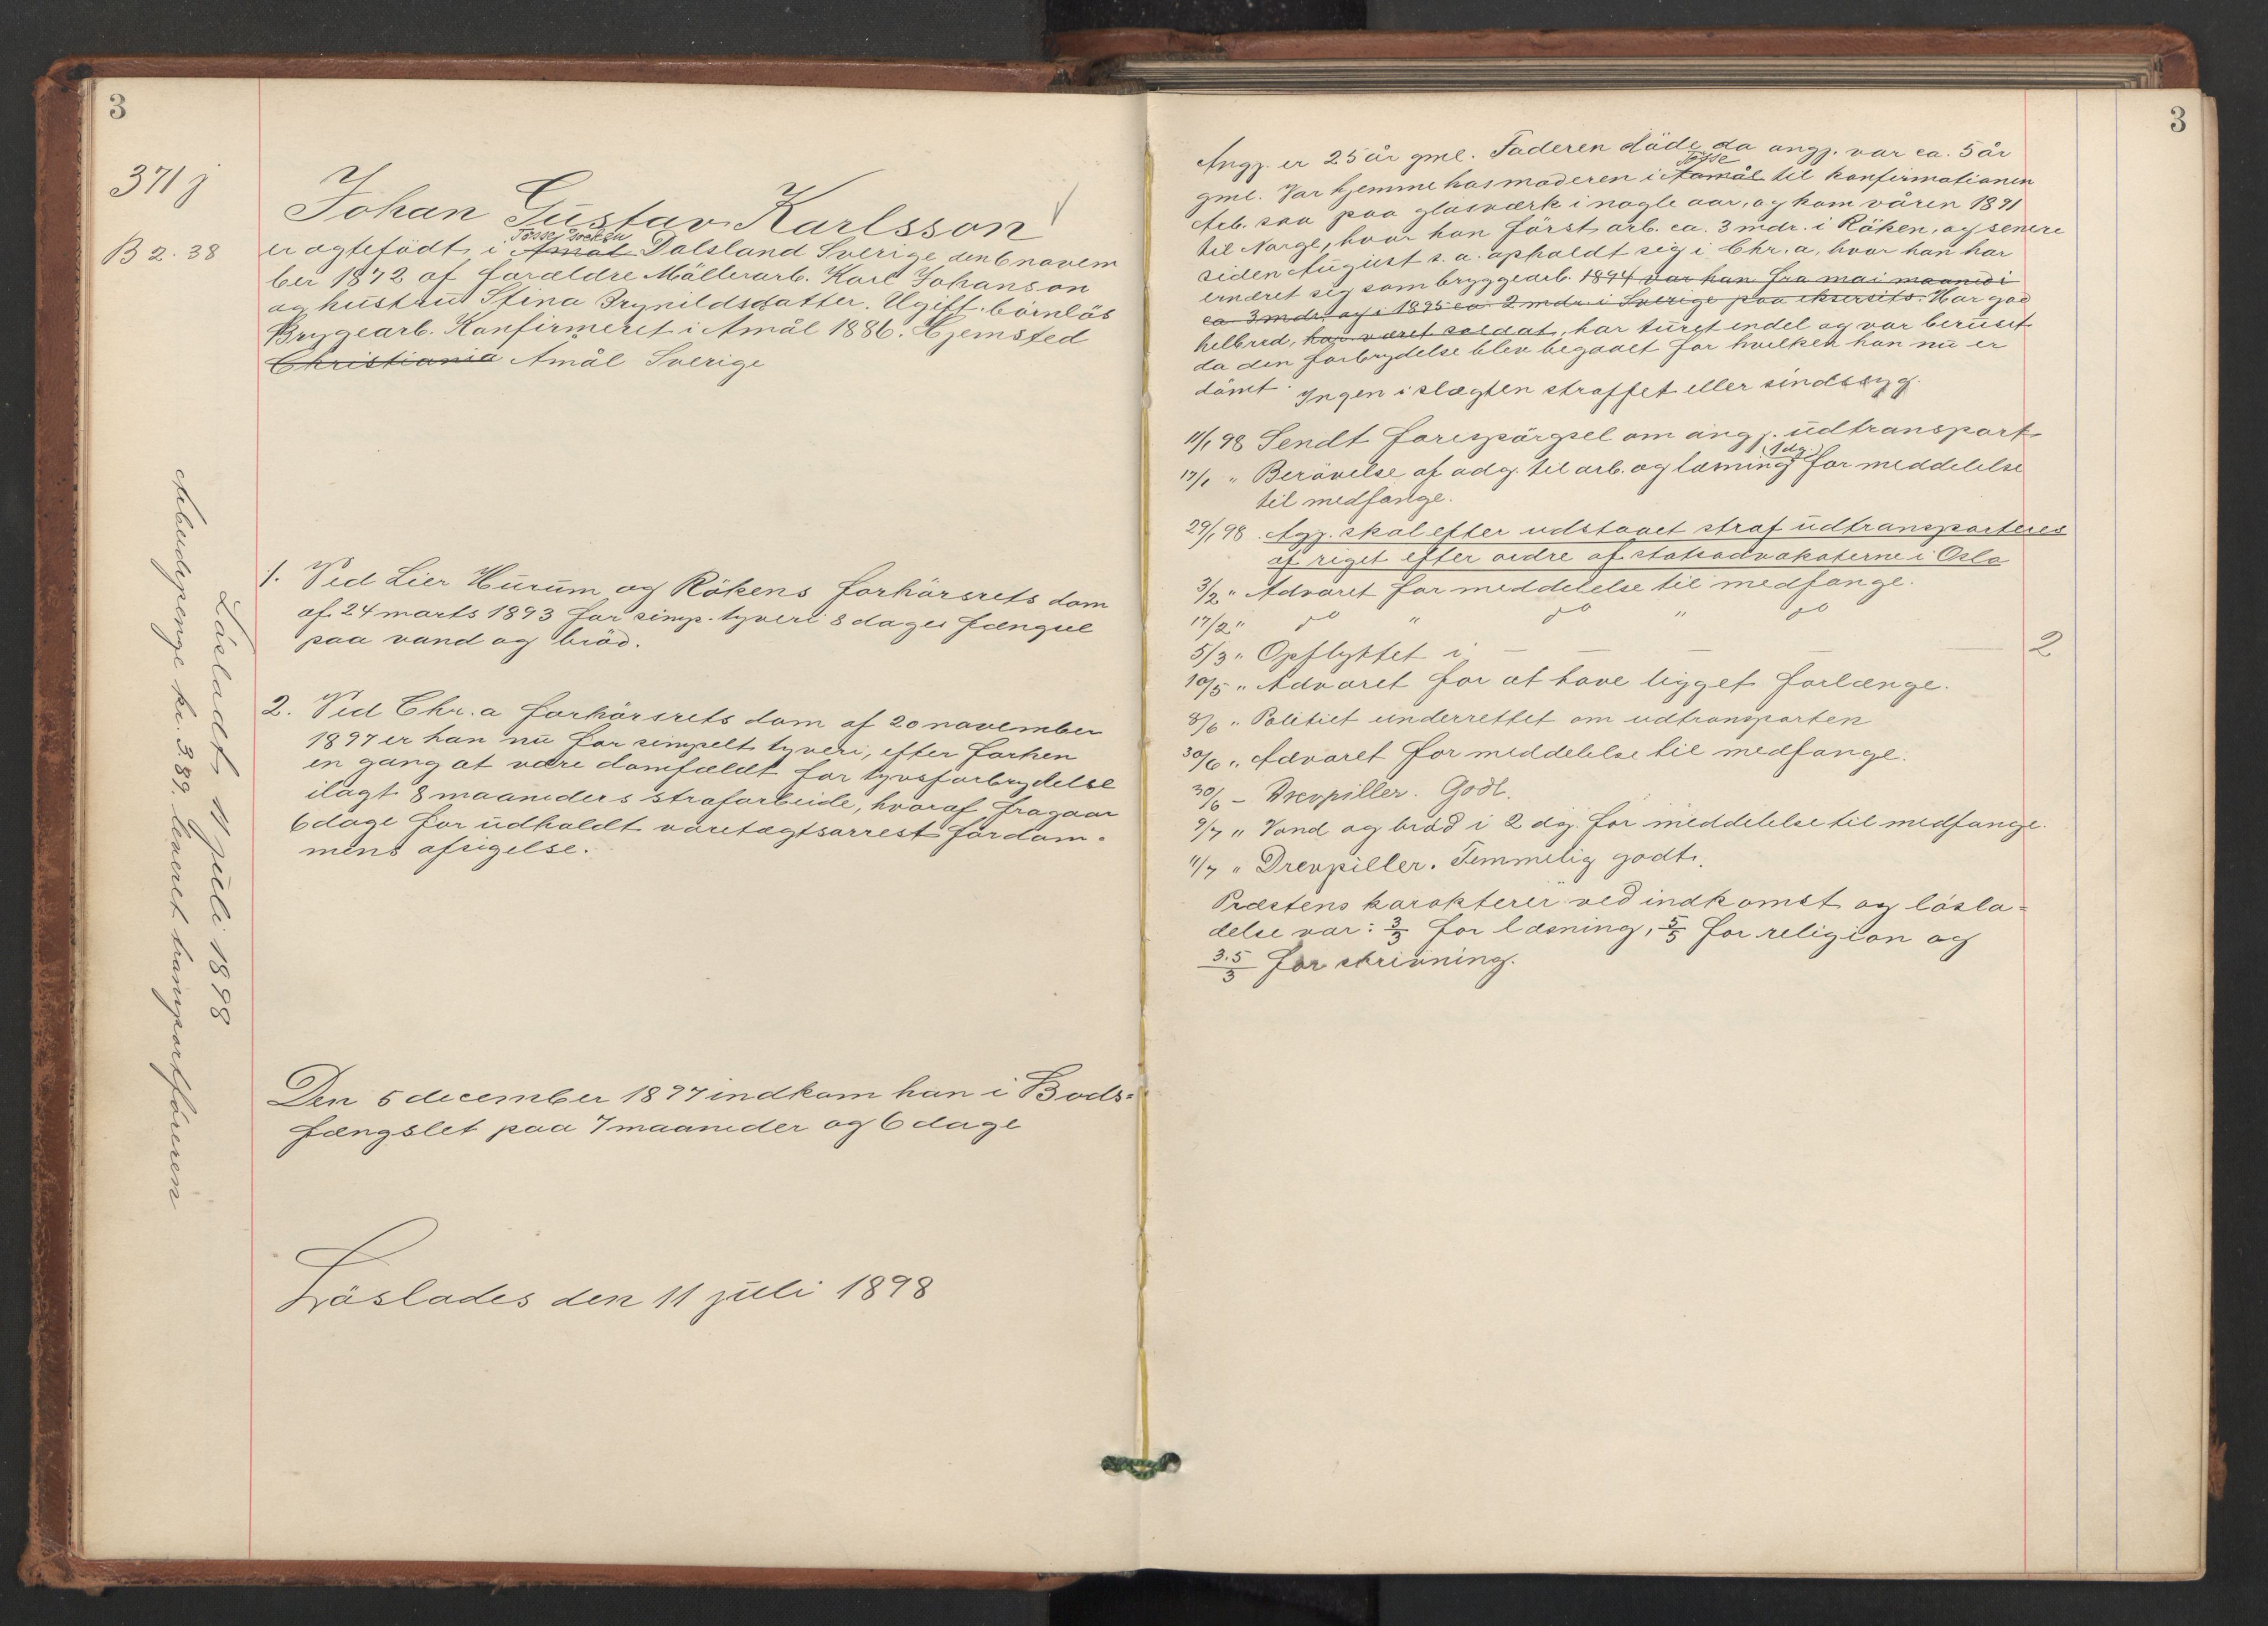 3
371 j
B 2. 38
Johan Gustav Karlsson
Tösse socken
er ægtefödt i Åmål Dalsland Sverige den 6 novem
ber 1872 af forældre Möllerarb. Karl Johanson
og hustru Stina Brynildsdatter. Ugift. börnlös
Bryggearb. Konfirmeret i Åmål 1886. Hjemsted
Christiania Åmål Sverige
1. Ved Lier Hurum og Rökens forhörsrets dom
af 24 marts 1893 for simp. tyveri 8 dages fængsel
paa vand og bröd.
2. Ved Chr.a forhörsrets dom af 20 november
1897 er han nu for simpelt tyveri, efter forhen
en gang at være domfældt for tyvsforbrydelse
ilagt 8 maaneders strafarbeide, hvoraf fragaar
6 dage for udholdt varetægtsarrest för dom-
mens afsigelse.
Den 5 december 1897 indkom han i Bods=
fængslet paa 7 maaneder og 6 dage
Löslades den 11 juli 1898
Lösladt 11 juli 1898
Arbeidspenge kr. 3.89. leveret transportföreren
3
Angj. er 25 år gml. Faderen döde da angj. var ca. 5 år
Tösse
gml. Var hjemme hos moderen i Aamål til konfirmationen
Arb. saa paa glasværk i nogle aar, og kom våren 1891
til Norge, hvor han först arb. ca. 3 mdr. i Röken, og senere
siden August s. a. opholdt sig i Chr.a, hvor han har
ernæret sig som bryggearb. 1894 var han fra mai maaned i
ca 3 mdr. og i 1895 ca. 2 mdr. i Sverige paa eksersits. Har god
helbred, har været soldat, har turet endel og var beruset
da den forbrydelse blev begaaet for hvilken han nu er
dömt. Ingen i slægten straffet eller sindssyg.
11/1 98 Sendt forespörgsel om angj. udtransport
(1 dg.)
17/1 " Berövelse af adg. til arb. og læsning for meddelelse
til medfange.
29/1 98. Agj. skal efter udstaaet straf udtransporteres
af riget efter ordre af statsadvokaterne i Oslo
3/2 " Advaret for meddelelse til medfange.
17/2 " do " do " do
5/3 " Opflyttet i — — — — 2
10/5 " Advaret for at have ligget forlænge.
8/6 " Politiet underrettet om udtransporten
30/6 " Advaret for meddelelse til medfange.
30/6 – Drevpiller. Godt.
9/7 " Vand og bröd i 2 dg. for meddelelse til medfange.
11/7 " Drevpiller. Temmelig godt.
Præstens karakterer ved indkomst og lösla=
delse var: 3/3 for læsning, 5/5 for religion og
3.5/3 for skrivning.